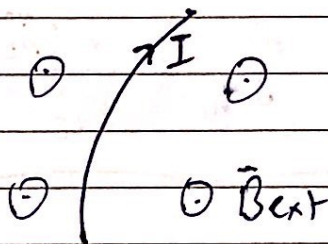 I
B̄ext